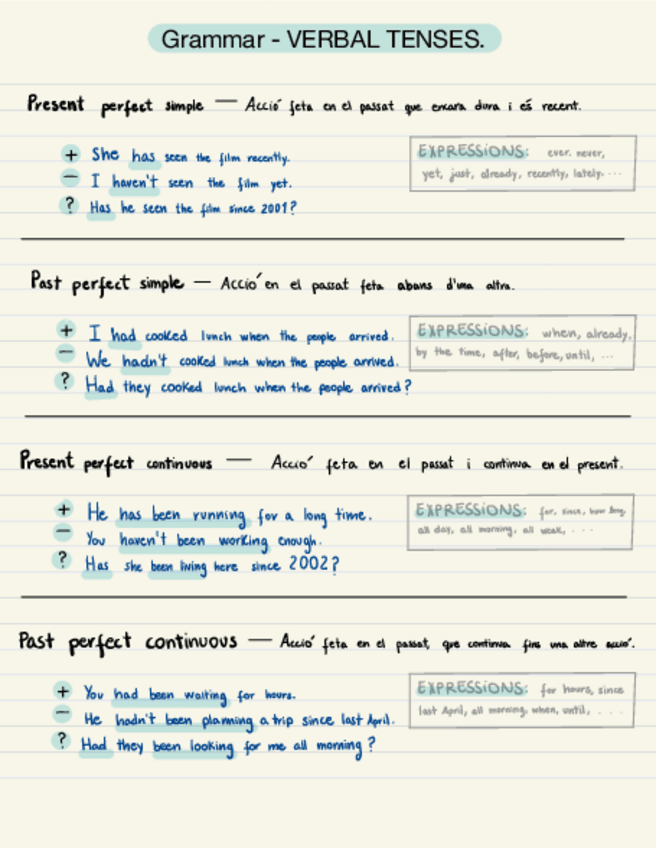 Grammar - VERBAL TENSES.
Present perfect simple — Acció feta en el passat que encara dura i és recent.
+ She has seen the film recently.
− I haven't seen the film yet.
? Has he seen the film since 2001?
EXPRESSIONS: ever, never,
yet, just, already, recently, lately....
Past perfect simple — Acció en el passat feta abans d'una altra.
+ I had cooked lunch when the people arrived.
− We hadn't cooked lunch when the people arrived.
? Had they cooked lunch when the people arrived?
EXPRESSIONS: when, already,
by the time, after, before, until, ...
Present perfect continuous — Acció feta en el passat i continua en el present.
+ He has been running for a long time.
− You haven't been working enough.
? Has she been living here since 2002?
EXPRESSIONS: for, since, how long,
all day, all morning, all weak, ...
Past perfect continuous — Acció feta en el passat, que continua fins una altre acció.
+ You had been waiting for hours.
− He hadn't been planning a trip since last April.
? Had they been looking for me all morning?
EXPRESSIONS: for hours, since
last April, all morning, when, until, ...